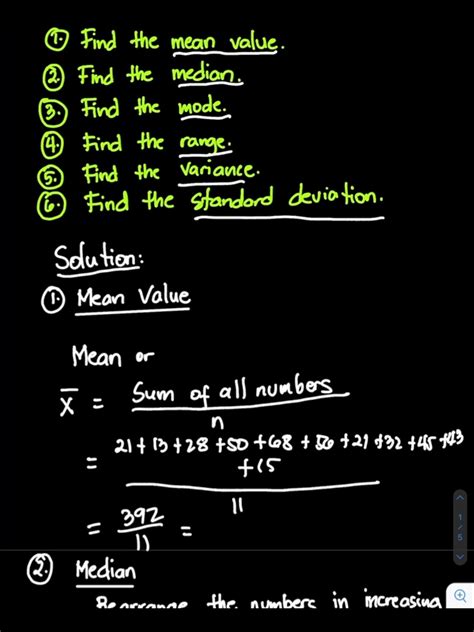 1. Find the mean value.
2. Find the median.
3. Find the mode.
4. Find the range.
5. Find the variance.
6. Find the standard deviation.
Solution:
1. Mean Value
Mean or
x̄ = Sum of all numbers
n
= 21 + 13 + 28 + 50 + 68 + 56 + 21 + 32 + 45 + 43
+ 15
11
= 392 =
11
2. Median
Rearrange the numbers in increasing
1
/
5